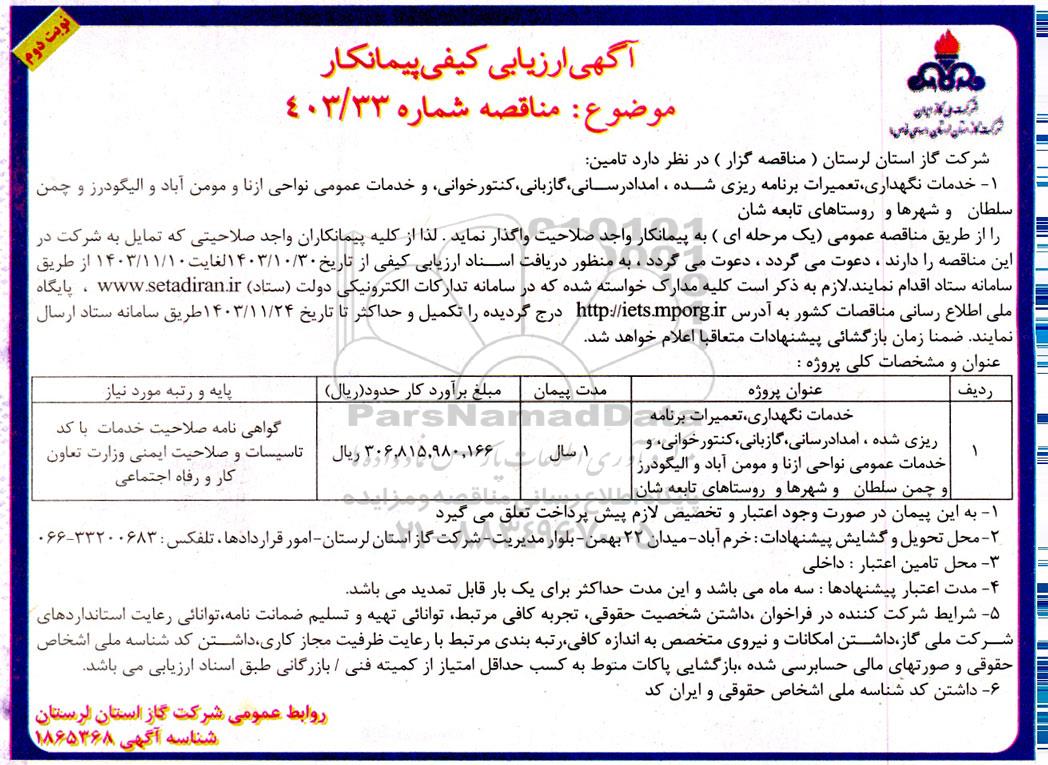 نوبت دوم
آگهی ارزیابی کیفی پیمانکار
موضوع: مناقصه شماره ۴۰۳/۳۳
شرکت ملی گاز ایران
شرکت گاز استان لرستان (مناقصه گزار) در نظر دارد تامین:
۱- خدمات نگهداری،تعمیرات برنامه ریزی شده ، امدادرسانی،گازبانی،کنتورخوانی، و خدمات عمومی نواحی ازنا و مومن آباد و الیگودرز و چمن
سلطان و شهرها و روستاهای تابعه شان
را از طریق مناقصه عمومی (یک مرحله ای ) به پیمانکار واجد صلاحیت واگذار نماید . لذا از کلیه پیمانکاران واجد صلاحیتی که تمایل به شرکت در
این مناقصه را دارند ، دعوت می گردد ، دعوت می گردد ، به منظور دریافت اسناد ارزیابی کیفی از تاریخ۱۴۰۳/۱۰/۳۰لغایت۱۴۰۳/۱۱/۱۰ از طریق
سامانه ستاد اقدام نمایند.لازم به ذکر است کلیه مدارک خواسته شده که در سامانه تدارکات الکترونیکی دولت (ستاد) www.setadiran.ir ، پایگاه
ملی اطلاع رسانی مناقصات کشور به آدرس http://iets.mporg.ir درج گردیده را تکمیل و حداکثر تا تاریخ ۱۴۰۳/۱۱/۲۴طریق سامانه ستاد ارسال
نمایند. ضمنا زمان بازگشائی پیشنهادات متعاقبا اعلام خواهد شد.
عنوان و مشخصات کلی پروژه :
ردیف عنوان پروژه مدت پیمان مبلغ برآورد کار حدود(ریال) پایه و رتبه مورد نیاز
۱ خدمات نگهداری،تعمیرات برنامه
ریزی شده ، امدادرسانی،گازبانی،کنتورخوانی، و
خدمات عمومی نواحی ازنا و مومن آباد و الیگودرز
و چمن سلطان و شهرها و روستاهای تابعه شان
۱ سال
۳۰۶،۸۱۵،۹۸۰،۱۶۶ ریال
گواهی نامه صلاحیت خدمات با کد
تاسیسات و صلاحیت ایمنی وزارت تعاون
کار و رفاه اجتماعی
۱- به این پیمان در صورت وجود اعتبار و تخصیص لازم پیش پرداخت تعلق می گیرد
۲-محل تحویل و گشایش پیشنهادات: خرم آباد-میدان ۲۲ بهمن- بلوار مدیریت- شرکت گاز استان لرستان-امور قراردادها، تلفکس: ۳۳۲۰۰۶۸۳-۰۶۶
۳- محل تامین اعتبار : داخلی
۴- مدت اعتبار پیشنهادها : سه ماه می باشد و این مدت حداکثر برای یک بار قابل تمدید می باشد.
۵- شرایط شرکت کننده در فراخوان ،داشتن شخصیت حقوقی، تجربه کافی مرتبط، توانائی تهیه و تسلیم ضمانت نامه،توانائی رعایت استانداردهای
شرکت ملی گاز،داشتن امکانات و نیروی متخصص به اندازه کافی،رتبه بندی مرتبط با رعایت ظرفیت مجاز کاری،داشتن کد شناسه ملی اشخاص
حقوقی و صورتهای مالی حسابرسی شده ،بازگشایی پاکات منوط به کسب حداقل امتیاز از کمیته فنی / بازرگانی طبق اسناد ارزیابی می باشد.
۶- داشتن کد شناسه ملی اشخاص حقوقی و ایران کد
روابط عمومی شرکت گاز استان لرستان
شناسه آگهی ۱۸۶۵۳۶۸
ParsNamadData
پایگاه اطلاع رسانی مناقصه و مزایده